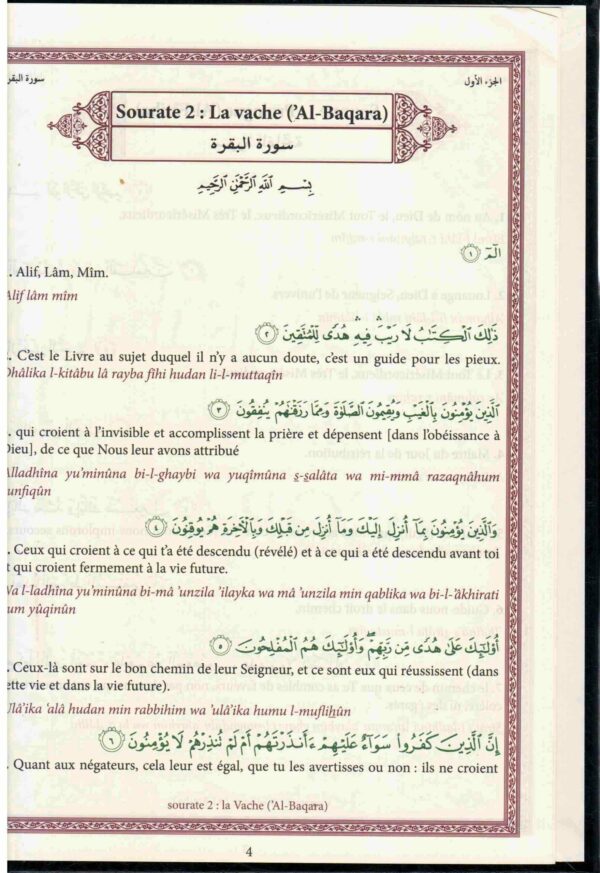 سورة البقر
الجزء الأول
Sourate 2 : La vache (’Al-Baqara)
سورة البقرة
بِسْمِ اللَّهِ الرَّحْمَٰنِ الرَّحِيمِ
الٓمٓ ١
. Alif, Lâm, Mîm.
Alif lâm mîm
ذَٰلِكَ الْكِتَابُ لَا رَيْبَ ۛ فِيهِ ۛ هُدًى لِلْمُتَّقِينَ ٢
. C’est le Livre au sujet duquel il n’y a aucun doute, c’est un guide pour les pieux.
Dhâlika l-kitâbu lâ rayba fîhi hudan li-l-muttaqîn
الَّذِينَ يُؤْمِنُونَ بِالْغَيْبِ وَيُقِيمُونَ الصَّلَوٰةَ وَمِمَّا رَزَقْنَٰهُمْ يُنفِقُونَ ٣
. qui croient à l’invisible et accomplissent la prière et dépensent [dans l’obéissance à
Dieu], de ce que Nous leur avons attribué
Alladhîna yu’minûna bi-l-ghaybi wa yuqîmûna s-salâta wa mi-mmâ razaqnâhum
unfiqûn
وَالَّذِينَ يُؤْمِنُونَ بِمَا أُنزِلَ إِلَيْكَ وَمَا أُنزِلَ مِن قَبْلِكَ وَبِالْآخِرَةِ هُمْ يُوقِنُونَ ٤
. Ceux qui croient à ce qui t’a été descendu (révélé) et à ce qui a été descendu avant toi
t qui croient fermement à la vie future.
Wa l-ladhîna yu’minûna bi-mâ ’unzila ’ilayka wa mâ ’unzila min qablika wa bi-l-’âkhirati
um yûqinûn
أُوْلَٰٓئِكَ عَلَىٰ هُدًى مِّن رَّبِّهِمْ ۖ وَأُوْلَٰٓئِكَ هُمُ الْمُفْلِحُونَ ٥
. Ceux-là sont sur le bon chemin de leur Seigneur, et ce sont eux qui réussissent (dans
ette vie et dans la vie future).
Ulâ’ika ‘alâ hudan min rabbihim wa ’ulâ’ika humu l-mufliḥûn
إِنَّ الَّذِينَ كَفَرُوا سَوَآءٌ عَلَيْهِمْ ءَأَنذَرْتَهُمْ أَمْ لَمْ تُنذِرْهُمْ لَا يُؤْمِنُونَ ٦
. Quant aux négateurs, cela leur est égal, que tu les avertisses ou non : ils ne croient
sourate 2 : la Vache (’Al-Baqara)
4